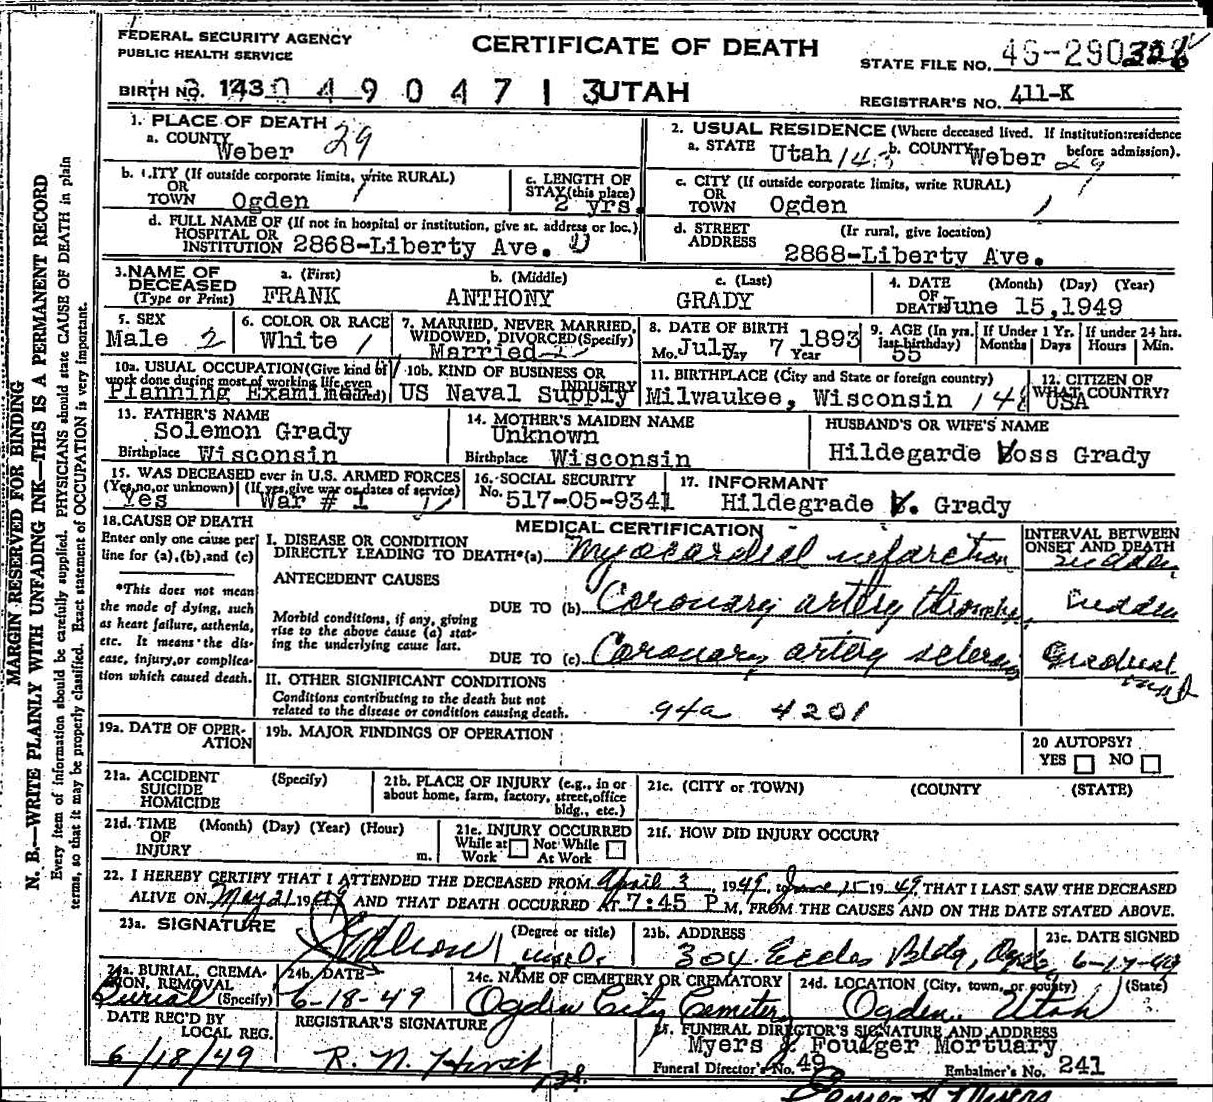 FEDERAL SECURITY AGENCY
PUBLIC HEALTH SERVICE
CERTIFICATE OF DEATH
STATE FILE NO. 49-290
BIRTH NO. 143 0 4 9 0 4 7 1 3 UTAH
REGISTRAR'S NO. 411-K
MARGIN RESERVED FOR BINDING
N. B.—WRITE PLAINLY WITH UNFADING INK—THIS IS A PERMANENT RECORD
Every item of information should be carefully supplied. PHYSICIANS should state CAUSE OF DEATH in plain
terms, so that it may be properly classified. Exact statement of OCCUPATION is very important.
1. PLACE OF DEATH
a. COUNTY Weber 29
2. USUAL RESIDENCE (Where deceased lived. If institution:residence
before admission).
a. STATE Utah 143 b. COUNTY Weber 29
b. CITY (If outside corporate limits, write RURAL)
OR
TOWN Ogden 1
c. LENGTH OF
STAY (this place)
2 yrs.
c. CITY (If outside corporate limits, write RURAL)
OR
TOWN Ogden 1
d. FULL NAME OF (If not in hospital or institution, give st. address or loc.)
HOSPITAL OR
INSTITUTION 2868-Liberty Ave. 0
d. STREET (If rural, give location)
ADDRESS 2868-Liberty Ave.
3. NAME OF
DECEASED
(Type or Print)
a. (First) b. (Middle) c. (Last)
FRANK ANTHONY GRADY
4. DATE (Month) (Day) (Year)
OF
DEATH June 15,1949
5. SEX
Male 2
6. COLOR OR RACE
White 1
7. MARRIED, NEVER MARRIED,
WIDOWED, DIVORCED(Specify)
Married
8. DATE OF BIRTH
Mo. July Day 7 Year 1893
9. AGE (In yrs.
last birthday)
55
If Under 1 Yr.
Months Days
If under 24 hrs.
Hours Min.
10a. USUAL OCCUPATION(Give kind of
work done during most of working life, even
Planning Examiner
10b. KIND OF BUSINESS OR
INDUSTRY
US Naval Supply
11. BIRTHPLACE (City and State or foreign country)
Milwaukee, Wisconsin 148
12. CITIZEN OF
WHAT COUNTRY?
USA
13. FATHER'S NAME
Solemon Grady
Birthplace Wisconsin
14. MOTHER'S MAIDEN NAME
Unknown
Birthplace Wisconsin
HUSBAND'S OR WIFE'S NAME
Hildegarde Voss Grady
15. WAS DECEASED ever in U.S. ARMED FORCES
(Yes,no,or unknown) (If yes,give war or dates of service)
Yes War # 1
16. SOCIAL SECURITY
No. 517-05-9341
17. INFORMANT
Hildegrade V. Grady
18. CAUSE OF DEATH
Enter only one cause per
line for (a),(b),and (c)
*This does not mean
the mode of dying, such
as heart failure, asthenia,
etc. It means the dis-
ease, injury,or complica-
tion which caused death.
MEDICAL CERTIFICATION
INTERVAL BETWEEN
ONSET AND DEATH
I. DISEASE OR CONDITION
DIRECTLY LEADING TO DEATH*(a) Myocardial infarction sudden
ANTECEDENT CAUSES
DUE TO (b) Coronary artery thromb. sudden
Morbid conditions, if any, giving
rise to the above cause (a) stat-
ing the underlying cause last.
DUE TO (c) Coronary artery sclerosis Gradual
II. OTHER SIGNIFICANT CONDITIONS
Conditions contributing to the death but not
related to the disease or condition causing death.
94a 4201
19a. DATE OF OPER-
ATION
19b. MAJOR FINDINGS OF OPERATION
20 AUTOPSY?
YES NO
21a. ACCIDENT (Specify)
SUICIDE
HOMICIDE
21b. PLACE OF INJURY (e.g., in or
about home, farm, factory, street,office
bldg., etc.)
21c. (CITY or TOWN) (COUNTY) (STATE)
21d. TIME (Month) (Day) (Year) (Hour)
OF
INJURY m.
21e. INJURY OCCURRED
While at Not While
Work At Work
21f. HOW DID INJURY OCCUR?
22. I HEREBY CERTIFY THAT I ATTENDED THE DECEASED FROM April 3, 1949, to June 15 1949, THAT I LAST SAW THE DECEASED
ALIVE ON May 21 1949 AND THAT DEATH OCCURRED AT 7:45 P M, FROM THE CAUSES AND ON THE DATE STATED ABOVE.
23a. SIGNATURE (Degree or title)
m.d.
23b. ADDRESS
304 Eccles Bldg, Ogden
23c. DATE SIGNED
6-17-49
24a. BURIAL, CREMA-
TION, REMOVAL
Burial (Specify)
24b. DATE
6-18-49
24c. NAME OF CEMETERY OR CREMATORY
Ogden City Cemetery
24d. LOCATION (City, town, or county) (State)
Ogden, Utah
DATE REC'D BY
LOCAL REG.
6/18/49
REGISTRAR'S SIGNATURE
R. N. Hirst
25. FUNERAL DIRECTOR'S SIGNATURE AND ADDRESS
Myers & Foulger Mortuary
Funeral Director's No. 49 Embalmer's No. 241